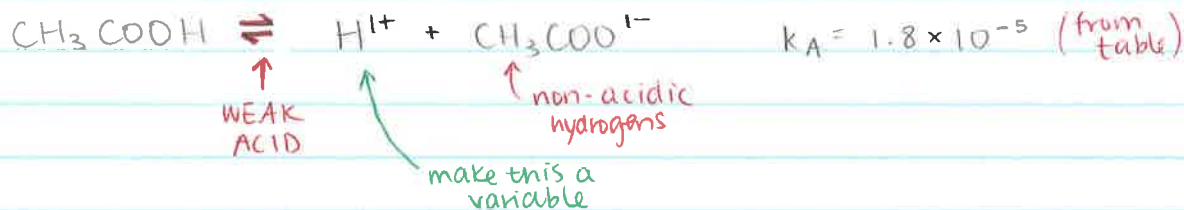 CH₃COOH ⇌ H¹⁺ + CH₃COO¹⁻ kA = 1.8 × 10⁻⁵ (from table)
↑ WEAK ACID
↑ non-acidic hydrogens
make this a variable